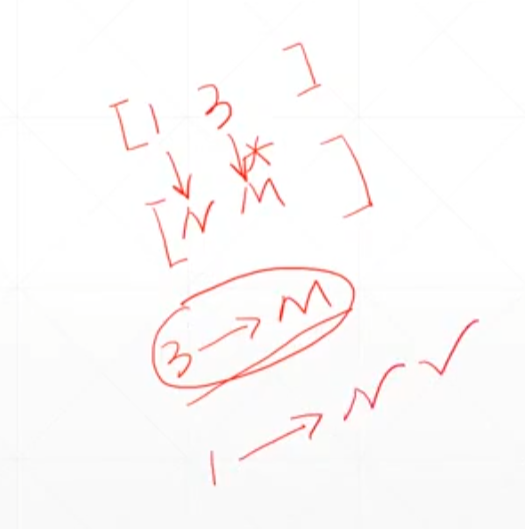 [1 3 ]
↓ ↓*
[N M ]
3 → M
1 → N ✓